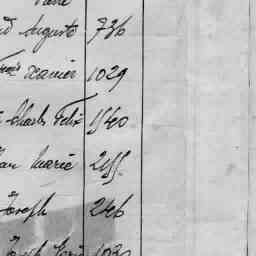 Auguste 736
Xavier 1029
Charles Felix 1540
Marie 255
Joseph 246
Joseph 1030